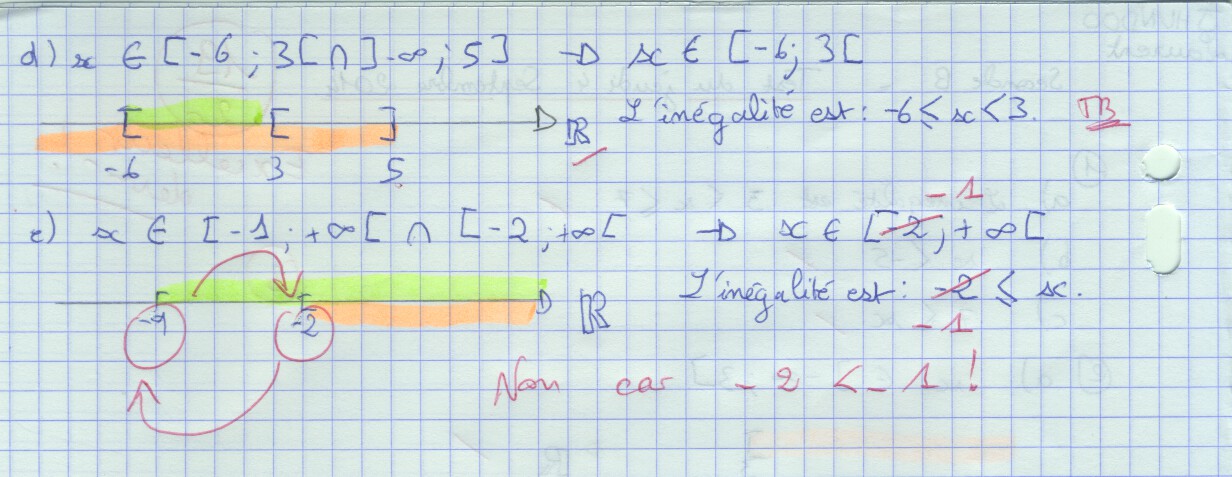 d) x ∈ [-6 ; 3[ ∩ ] -∞ ; 5] → x ∈ [-6 ; 3[
[ [ ] ℝ L'inégalité est : -6 ⩽ x < 3. TB
-6 3 5
-1
e) x ∈ [-1 ; +∞[ ∩ [-2 ; +∞[ → x ∈ [-2 ; +∞[
[ [ ℝ L'inégalité est : -2 ⩽ x.
-1 -2 -1
Non car -2 < -1 !